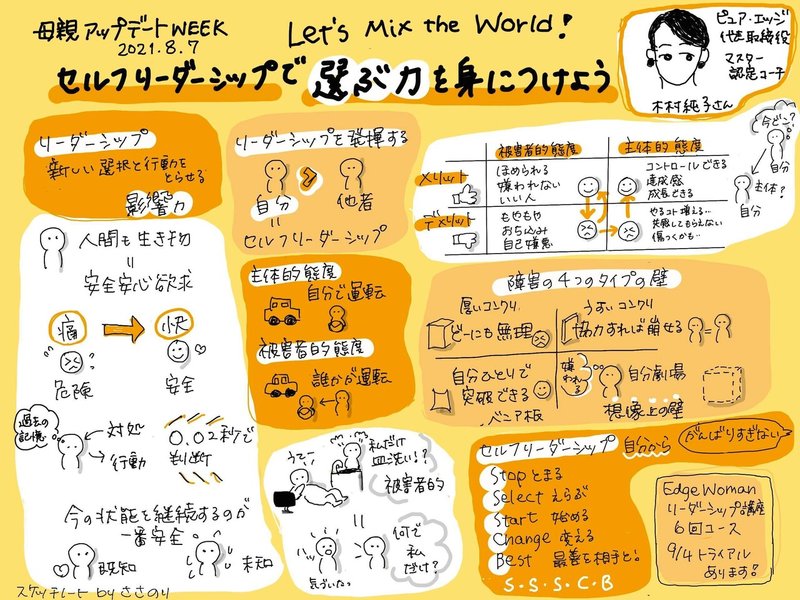 母親アップデートWEEK
2021.8.7
Let's Mix the World!
セルフリーダーシップで選ぶ力を身につけよう
ピュア・エッジ
代表取締役
マスター
認定コーチ
木村純子さん
リーダーシップ
新しい選択と行動を
とらせる
影響力
リーダーシップを発揮する
自分 > 他者
=
セルフリーダーシップ
被害者的態度
主体的態度
メリット
ほめられる
嫌われない
いい人
コントロールできる
達成感
成長できる
デメリット
もやもや
おちこみ
自己嫌悪
やるコト増える…
共感してもらえない
傷つくかも…
今どこ?
自分
主体?
自分
人間も生き物
=
安全安心欲求
痛 → 快
危険
安全
過去の
記憶
対処
行動
0.02秒で
判断
今の状態を継続するのが
一番安全
既知
未知
主体的態度
自分で運転
被害者的態度
誰かが運転
障害の4つのタイプの壁
厚いコンクリ
どーにも無理
うすいコンクリ
協力すれば崩せる
自分ひとりで
突破できる
ベニア板
嫌われる
自分劇場
想像上の壁
私だけ
皿洗い!?
被害者的
何で
私
だけ?
気づいたっ
セルフリーダーシップ 自分から
がんばりすぎない
Stop とまる
Select えらぶ
Start 始める
Change 変える
Best 最善を相手と。
S・S・S・C・B
Edge Woman
リーダーシップ講座
6回コース
9/4トライアル
あります!
スケッチノート by ささのり